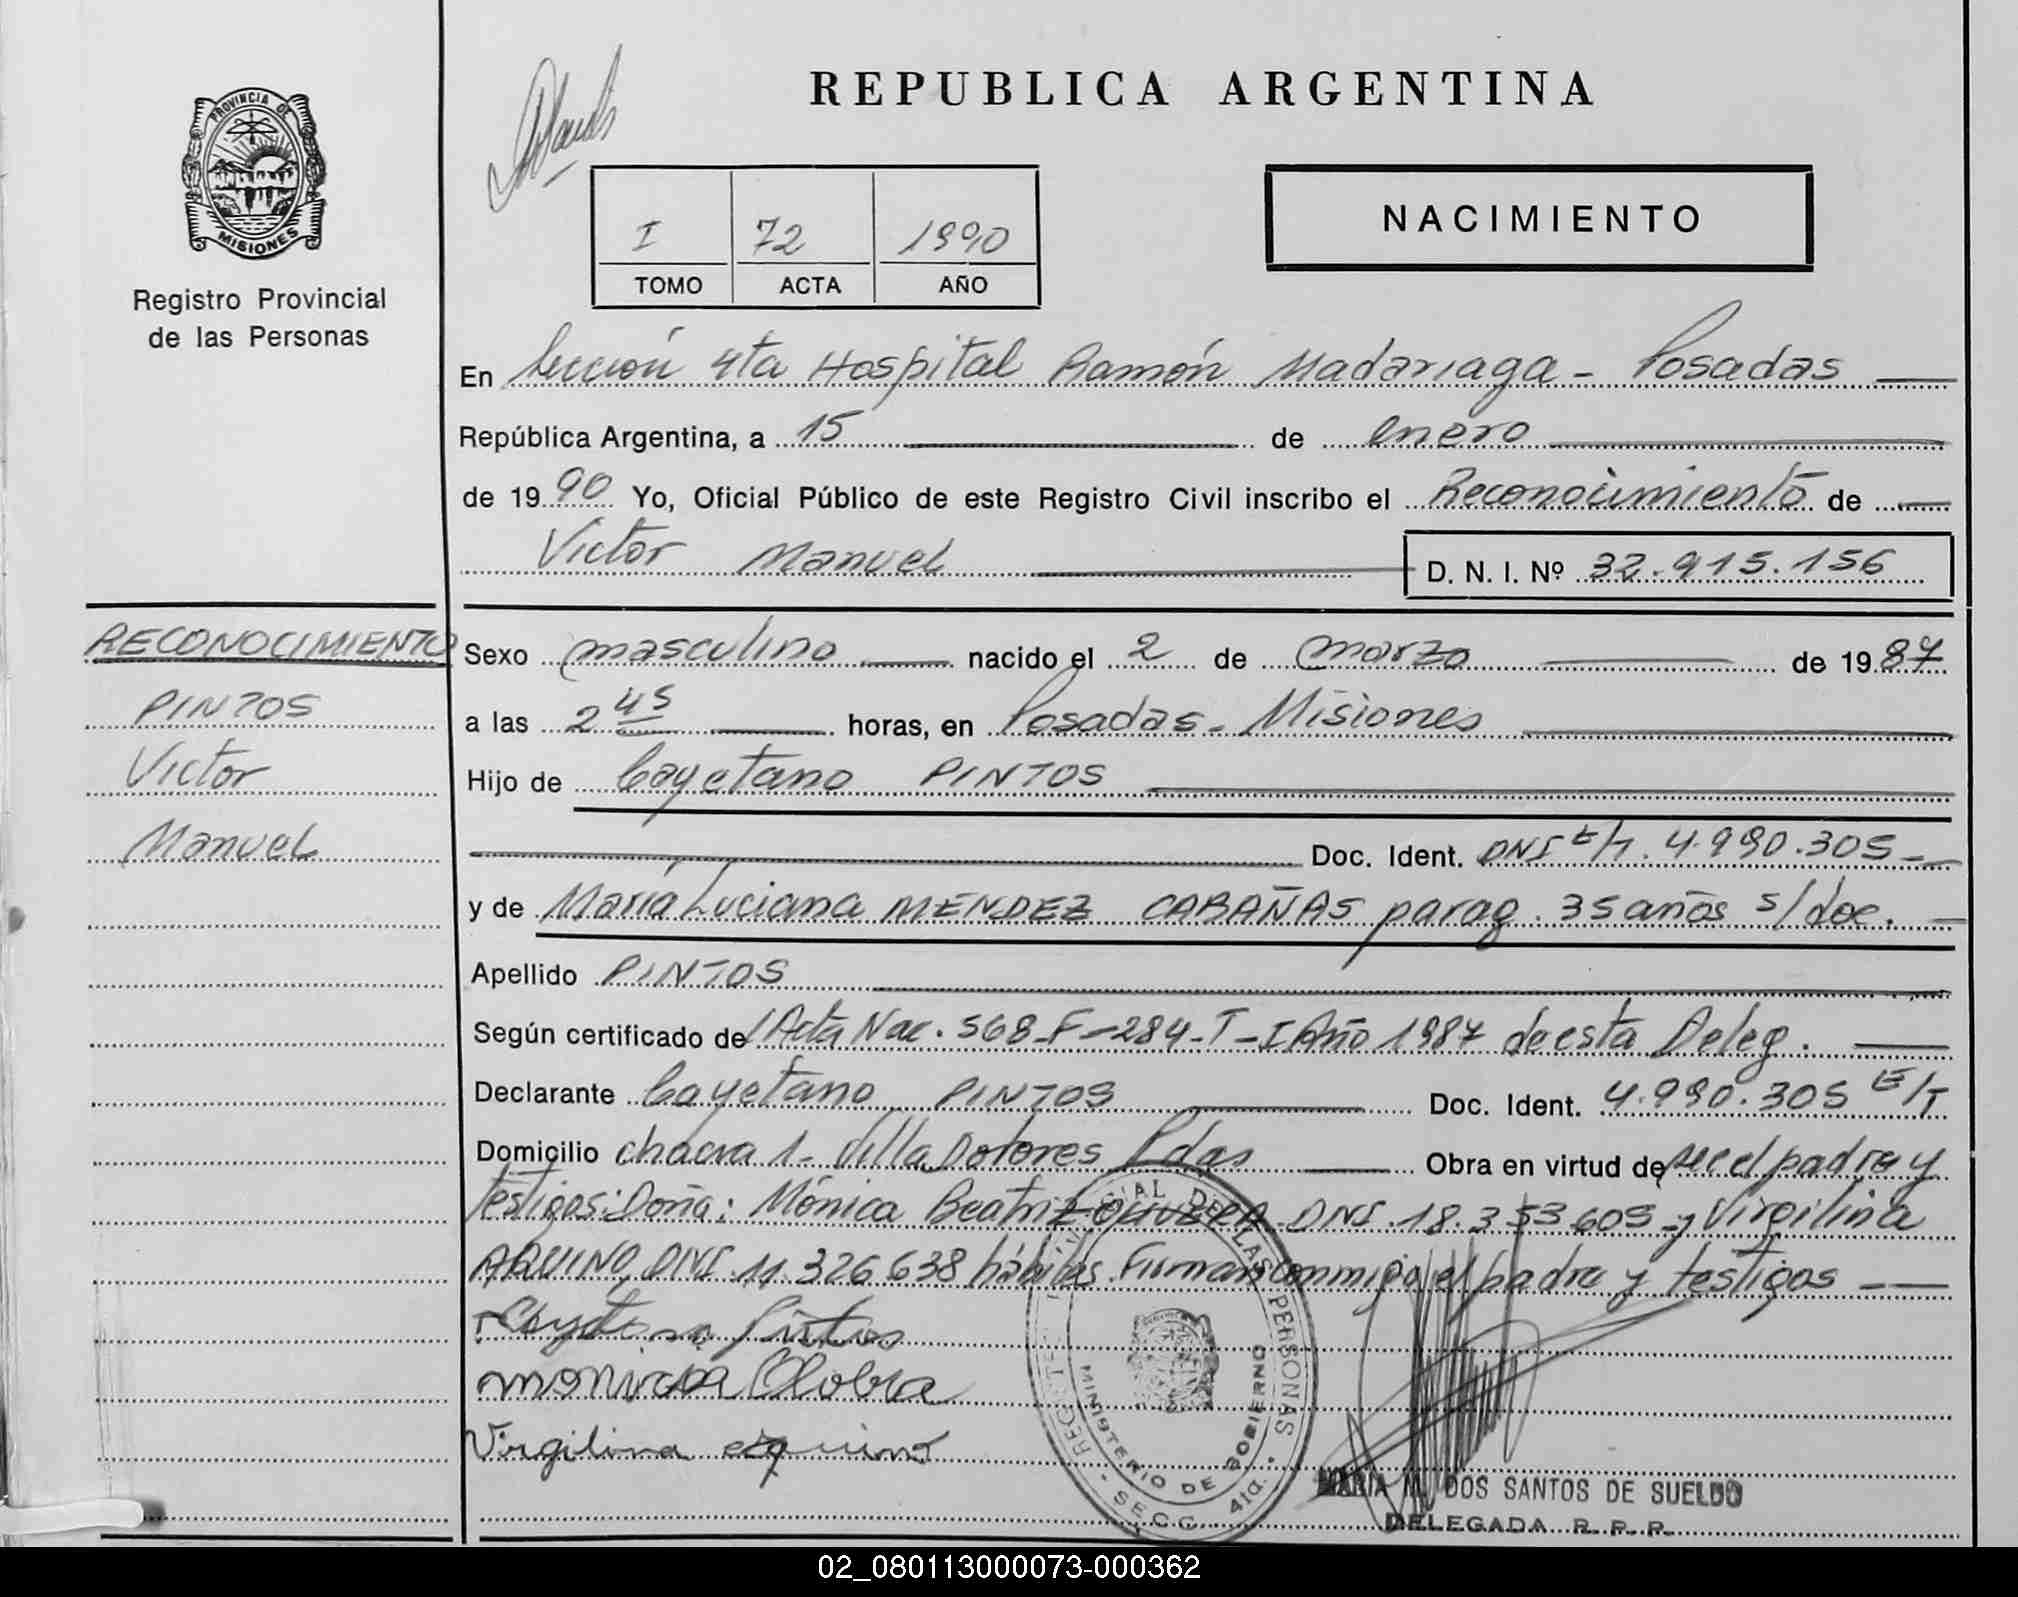 REPUBLICA ARGENTINA
PROVINCIA DE
MISIONES
Registro Provincial
de las Personas
I 72 1990
TOMO ACTA AÑO
NACIMIENTO
En Sección 4ta Hospital Ramón Madariaga - Posadas
República Argentina, a 15 de enero
de 1990 Yo, Oficial Público de este Registro Civil inscribo el Reconocimiento de
Victor Manuel D. N. I. Nº 32.915.156
RECONOCIMIENTO
PINTOS
Victor
Manuel
Sexo masculino nacido el 2 de marzo de 1987
a las 2 45 horas, en Posadas - Misiones
Hijo de Cayetano PINTOS
Doc. Ident. DNI E/T. 4.990.305
y de María Luciana MENDEZ CABAÑAS parag. 35 años s/doc.
Apellido PINTOS
Según certificado de Acta Nac. 568-F-284-T-I Año 1987 de esta Deleg.
Declarante Cayetano PINTOS Doc. Ident. 4.990.305 E/T
Domicilio chacra 1- Villa Dolores Pdas Obra en virtud de ser el padre y
testigos: Doña: Mónica Beatriz DNI. 18.353.609 y Virgilina
AQUINO, DNI. 11.326.638 hábiles. Firman conmigo el padre y testigos
Cayetano Pintos
Virgilina aquino
REGISTRO PROVINCIAL DE LAS PERSONAS
MINISTERIO DE GOBIERNO
- SECC. 4ta. -
MARIA M. DOS SANTOS DE SUELDO
DELEGADA R. P. P.
02_080113000073-000362